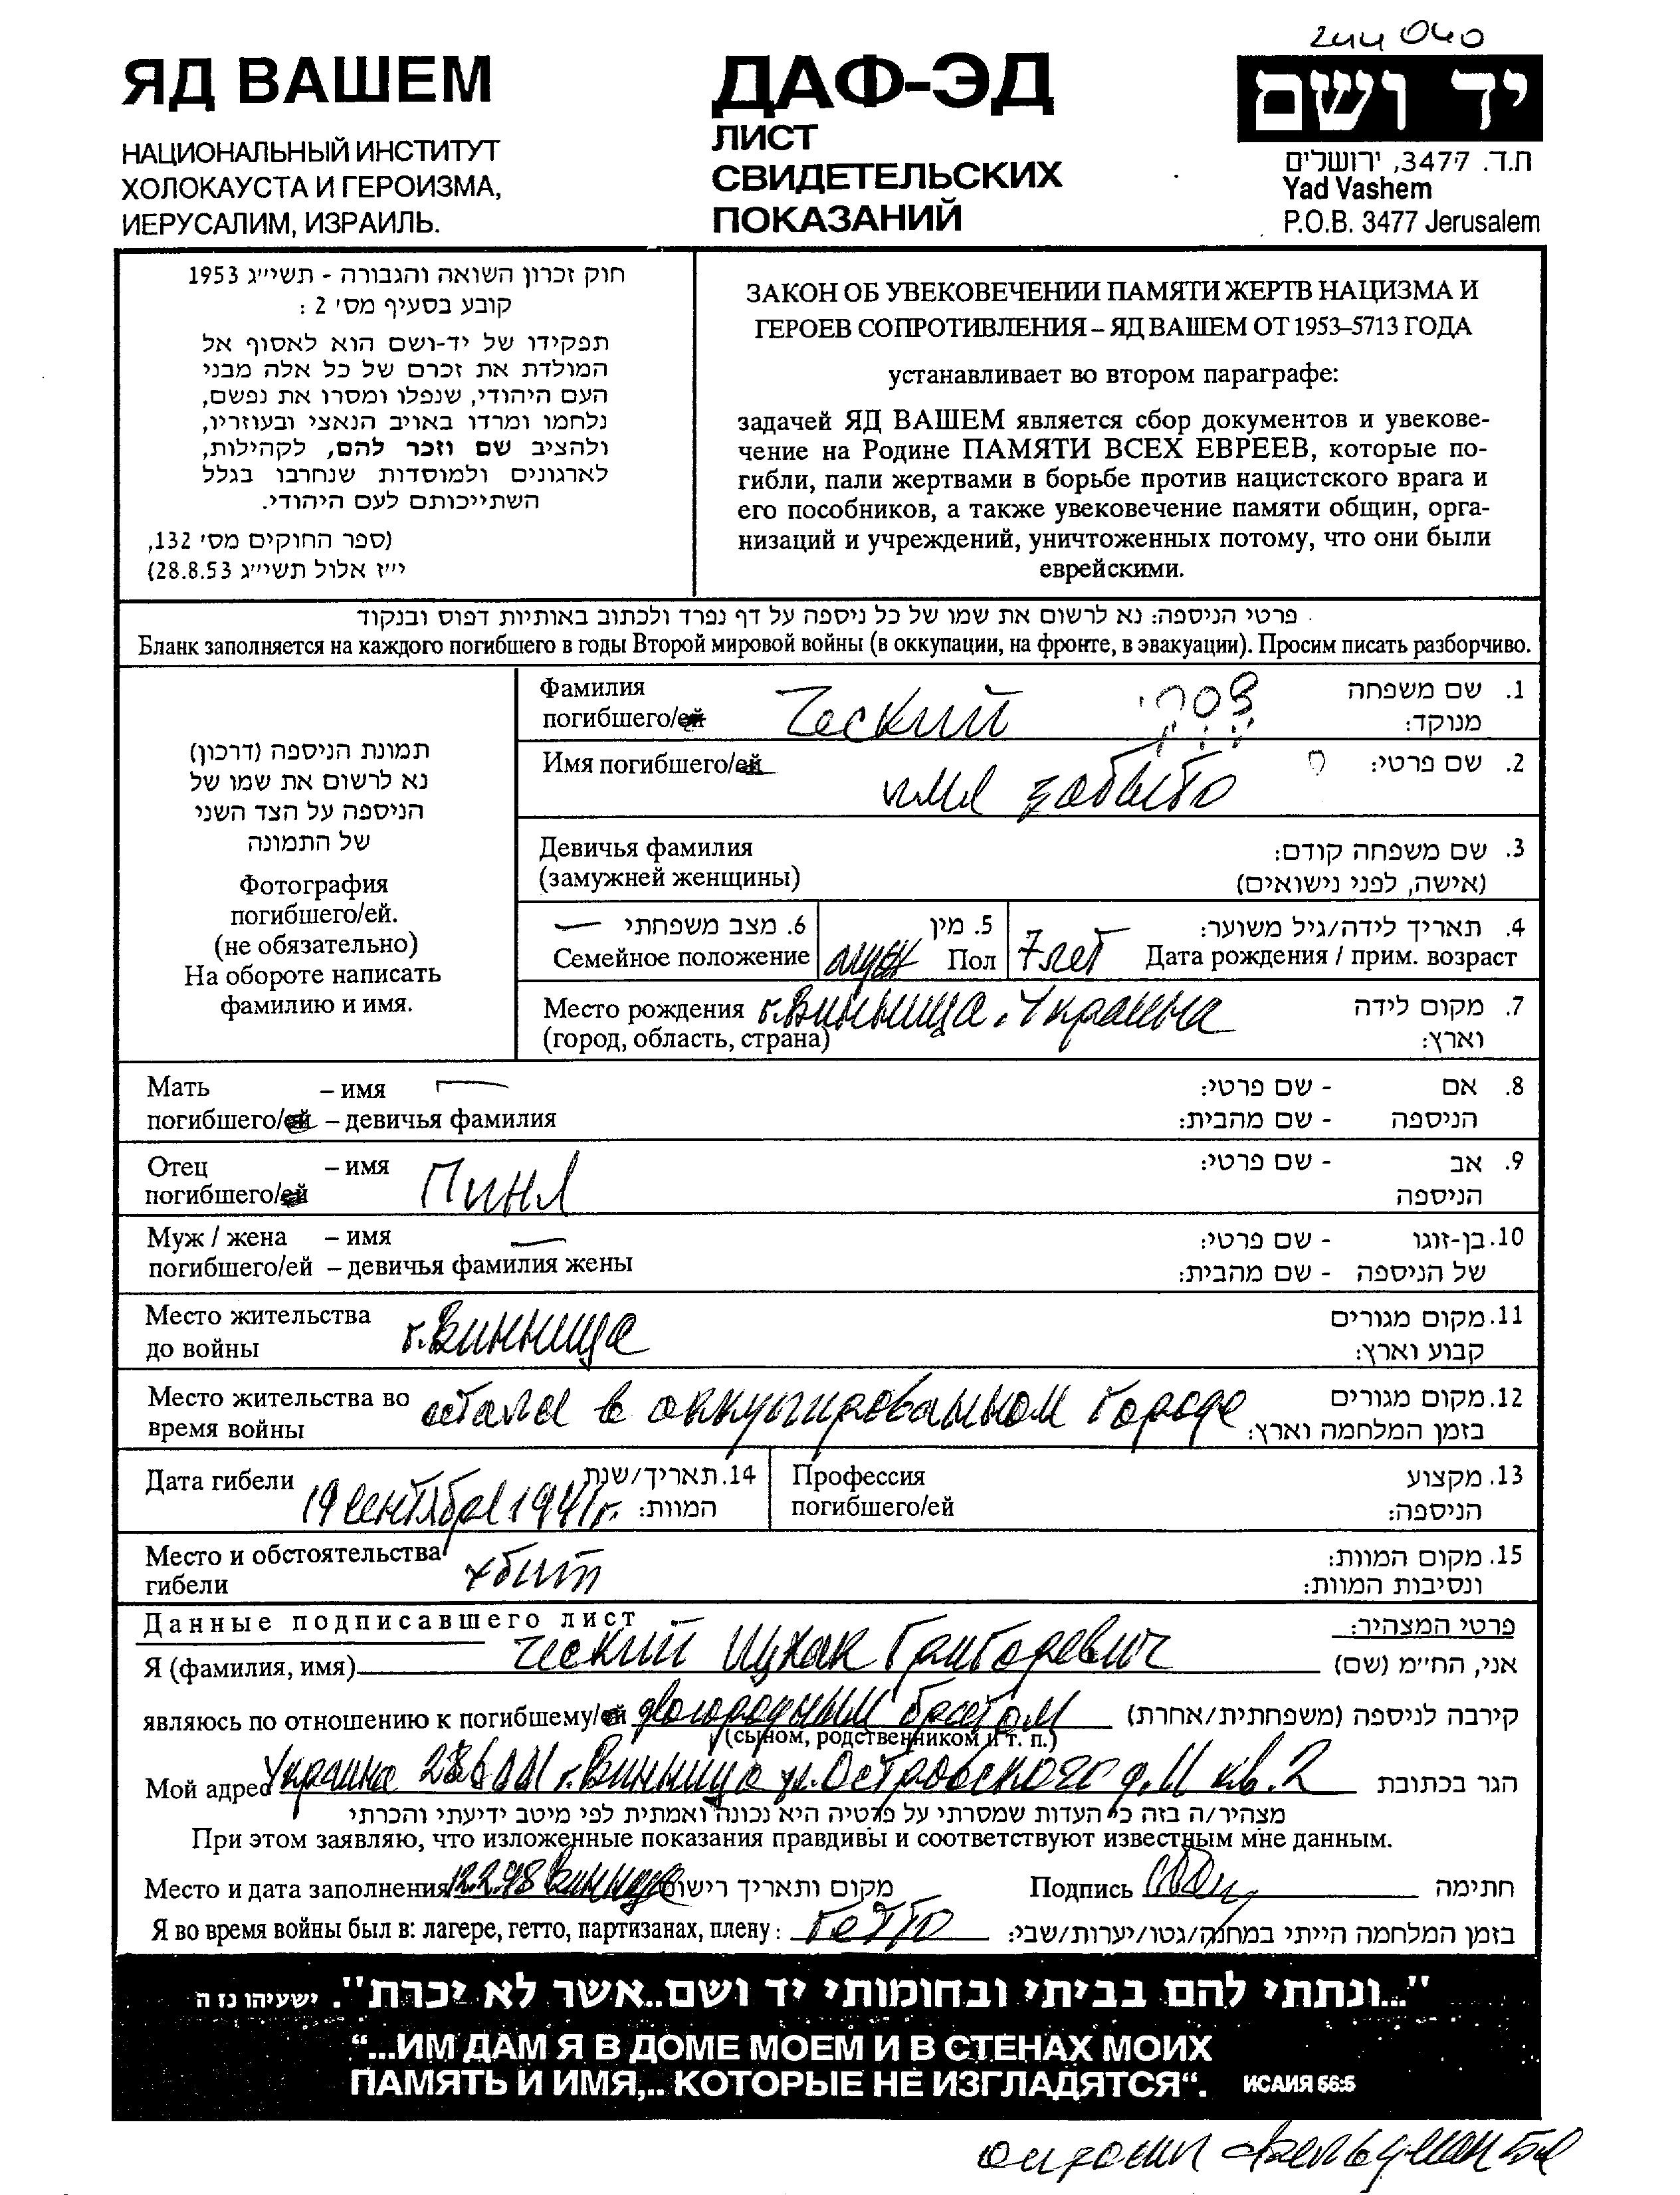 244040
ЯД ВАШЕМ
НАЦИОНАЛЬНЫЙ ИНСТИТУТ
ХОЛОКАУСТА И ГЕРОИЗМА,
ИЕРУСАЛИМ, ИЗРАИЛЬ.
ДАФ-ЭД
ЛИСТ
СВИДЕТЕЛЬСКИХ
ПОКАЗАНИЙ
יד ושם
ת.ד. 3477, ירושלים
Yad Vashem
P.O.B. 3477 Jerusalem
חוק זכרון השואה והגבורה - תשי״ג 1953
קובע בסעיף מס׳ 2 :
תפקידו של יד-ושם הוא לאסוף אל
המולדת את זכרם של כל אלה מבני
העם היהודי, שנפלו ומסרו את נפשם,
נלחמו ומרדו באויב הנאצי ובעוזריו,
ולהציב שם וזכר להם, לקהילות,
לארגונים ולמוסדות שנחרבו בגלל
השתייכותם לעם היהודי.
(ספר החוקים מס׳ 132,
י״ז אלול תשי״ג 28.8.53)
ЗАКОН ОБ УВЕКОВЕЧЕНИИ ПАМЯТИ ЖЕРТВ НАЦИЗМА И
ГЕРОЕВ СОПРОТИВЛЕНИЯ – ЯД ВАШЕМ ОТ 1953–5713 ГОДА
устанавливает во втором параграфе:
задачей ЯД ВАШЕМ является сбор документов и увекове-
чение на Родине ПАМЯТИ ВСЕХ ЕВРЕЕВ, которые по-
гибли, пали жертвами в борьбе против нацистского врага и
его пособников, а также увековечение памяти общин, орга-
низаций и учреждений, уничтоженных потому, что они были
еврейскими.
פרטי הניספה: נא לרשום את שמו של כל ניספה על דף נפרד ולכתוב באותיות דפוס ובנקוד
Бланк заполняется на каждого погибшего в годы Второй мировой войны (в оккупации, на фронте, в эвакуации). Просим писать разборчиво.
תמונת הניספה (דרכון)
נא לרשום את שמו של
הניספה על הצד השני
של התמונה
Фотография
погибшего/ей.
(не обязательно)
На обороте написать
фамилию и имя.
Фамилия 1. שם משפחה
погибшего/ей Ческий מנוקד:
Имя погибшего/ей имя забыто 2. שם פרטי:
Девичья фамилия 3. שם משפחה קודם:
(замужней женщины) (אישה, לפני נישואים)
6. מצב משפחתי — 5. מין 4. תאריך לידה/גיל משוער:
Семейное положение муж Пол 7 лет Дата рождения / прим. возраст
Место рождения г. Винница. Украина 7. מקום לידה
(город, область, страна) וארץ:
Мать – имя — 8. אם - שם פרטי:
погибшего/ей – девичья фамилия הניספה - שם מהבית:
Отец – имя Пиня 9. אב - שם פרטי:
погибшего/ей הניספה
Муж / жена – имя — 10. בן-זוגו - שם פרטי:
погибшего/ей – девичья фамилия жены של הניספה - שם מהבית:
Место жительства г. Винница 11. מקום מגורים
до войны קבוע וארץ:
Место жительства во остался в оккупированном городе 12. מקום מגורים
время войны בזמן המלחמה וארץ:
Дата гибели 19 сентября 1941 г. 14. תאריך/שנת המוות:
Профессия 13. מקצוע
погибшего/ей הניספה:
Место и обстоятельства убит 15. מקום המוות:
гибели ונסיבות המוות:
Данные подписавшего лист פרטי המצהיר:
Я (фамилия, имя) Ческий Ицхак Григоревич אני, הח״מ (שם)
являюсь по отношению к погибшему/ей двоюродным братом קירבה לניספה (משפחתית/אחרת)
(сыном, родственником и т. п.)
Мой адрес Украина г. Винница ул. Островского д. 11 кв. 2 הגר בכתובת
מצהיר/ה בזה כי העדות שמסרתי על פרטיה היא נכונה ואמתית לפי מיטב ידיעתי והכרתי
При этом заявляю, что изложенные показания правдивы и соответствуют известным мне данным.
Место и дата заполнения 12.2.98 Винница מקום ותאריך רישום Подпись חתימה
Я во время войны был в: лагере, гетто, партизанах, плену: гетто בזמן המלחמה הייתי במחנה/גטו/יערות/שבי:
"...ונתתי להם בביתי ובחומותי יד ושם..אשר לא יכרת". ישעיהו נז ה
“...ИМ ДАМ Я В ДОМЕ МОЕМ И В СТЕНАХ МОИХ
ПАМЯТЬ И ИМЯ,.. КОТОРЫЕ НЕ ИЗГЛАДЯТСЯ“. ИСАИЯ 56:5